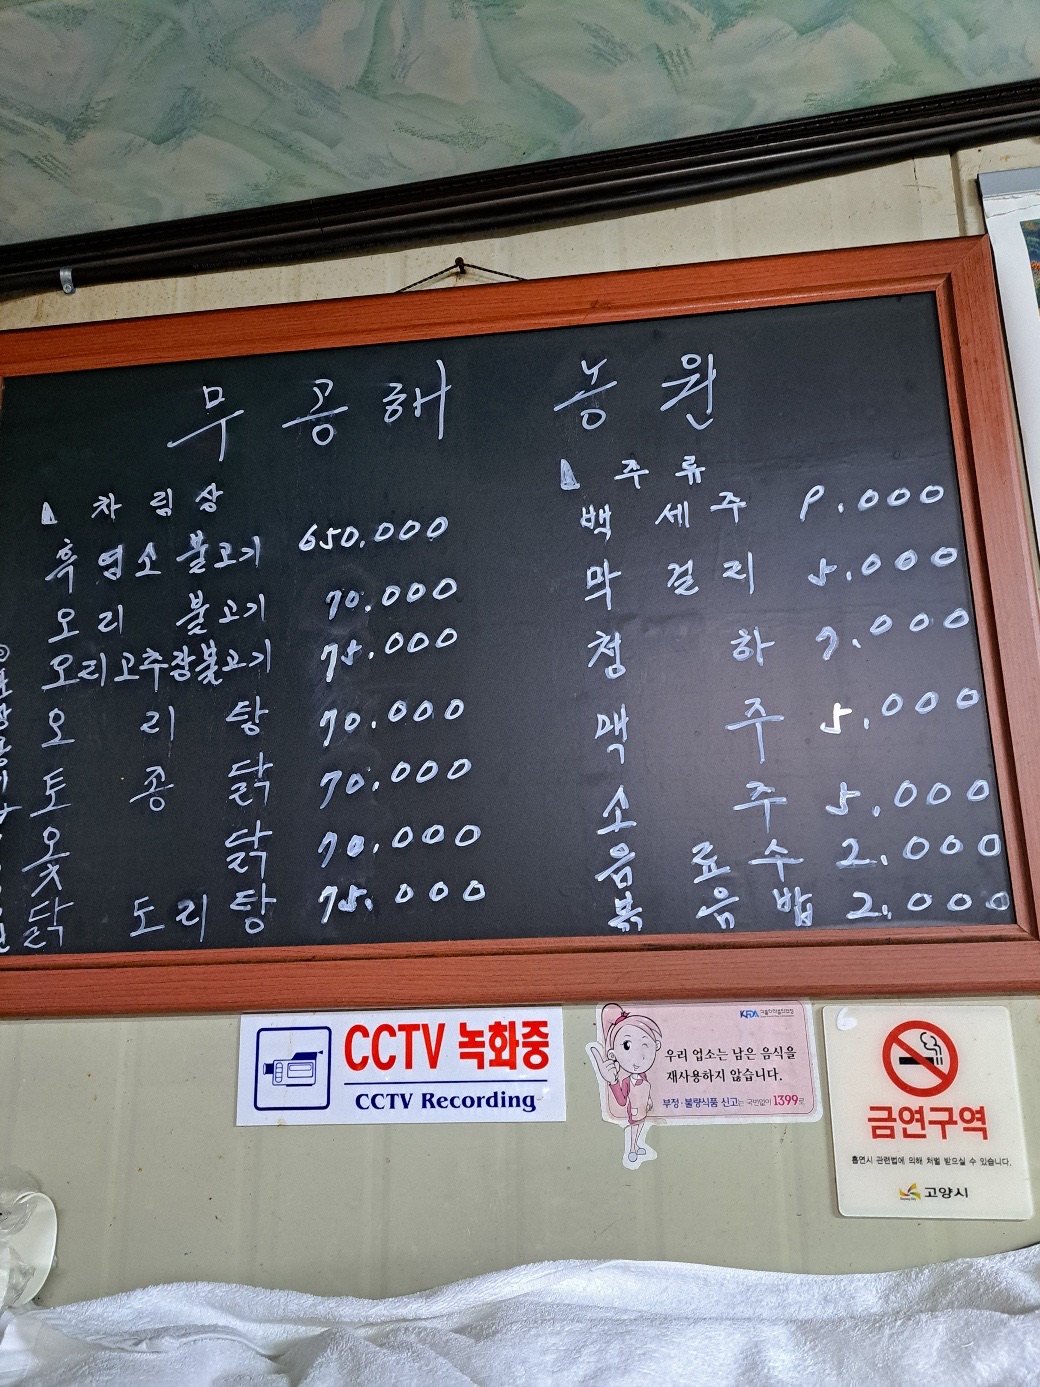 무공해 농원
차림상
흑염소 불고기 650.000
오리 불고기 70.000
오리고추장불고기 75.000
오리탕 70.000
토종닭 70.000
옻닭 70.000
닭도리탕 75.000
주류
백세주 9.000
막걸리 5.000
청하 7.000
맥주 5.000
소주 5.000
음료수 2.000
볶음밥 2.000
CCTV 녹화중
CCTV Recording
우리 업소는 남은 음식을
재사용하지 않습니다.
부정·불량식품 신고는 국번없이 1399로
6
금연구역
흡연시 관련법에 의해 처벌 받으실 수 있습니다.
고양시